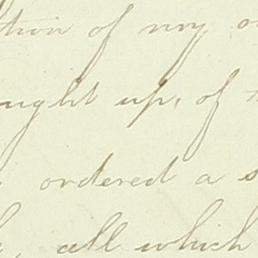 tion of my
ought up, of
ordered a
all which